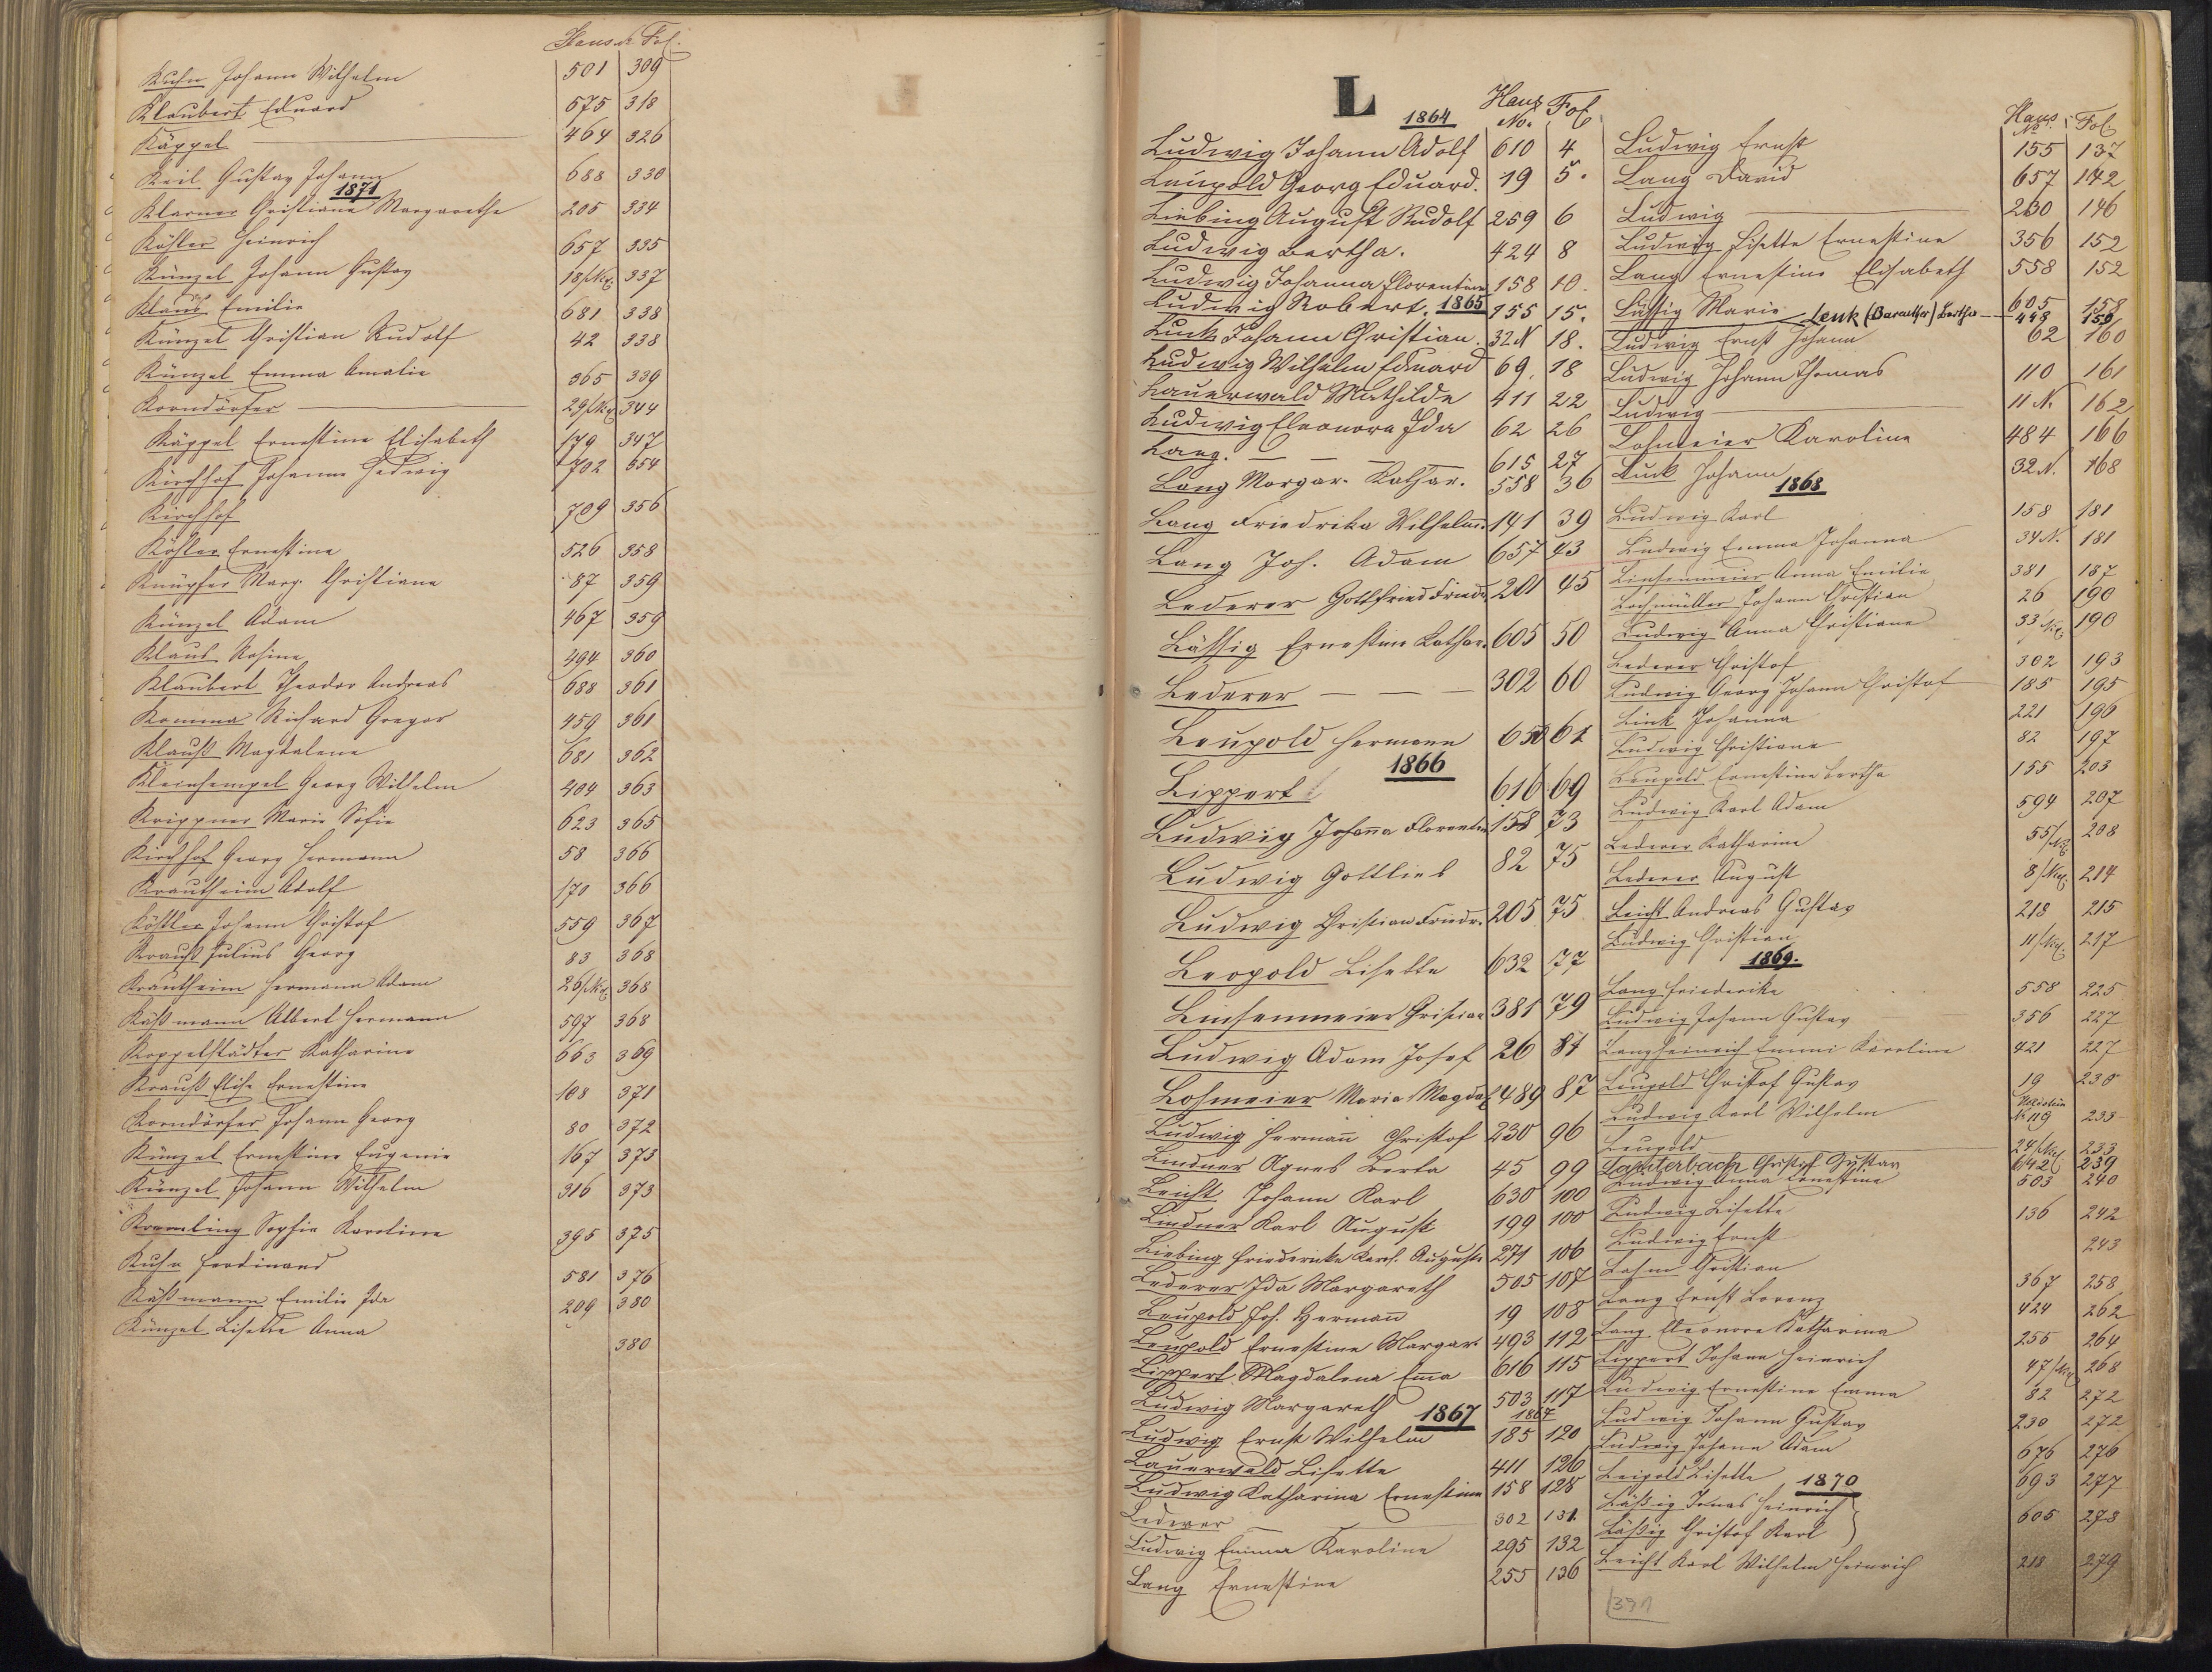 Haus № Fol.
Kuhn Johann Wilhelm 501 309
Klaubert Eduard 675 318
Käppel 464 326
Keil Gustav Johann 688 330
1871
Klarner Christiana Margarethe 205 334
Köhler Heinrich 657 335
Künzel Johann Gustav 18/Nie. 337
Klaus Emilie 681 338
Künzel Christian Rudolf 42 338
Künzel Emma Amalie 365 339
Korndörfer 29/Nie. 344
Käppel Ernestine Elisabeth 179 347
Kirchhof Johanna Hedwig 702 354
Kirchhof 709 356
Köhler Ernestine 526 358
Knüpfer Marg. Christiane 87 359
Künzel Adam 467 359
Klaus Rosine 494 360
Klaubert Theodor Andreas 688 361
Komma Richard Gregor 459 361
Klauß Magdalene 681 362
Kleinhempel Georg Wilhelm 404 363
Krippner Marie Sofie 623 365
Kirchhof Georg Hermann 58 366
Krautheim Adolf 170 366
Köstler Johann Christof 559 367
Krauß Julius Georg 83 368
Krautheim Hermann Adam 26/Nie. 368
Käßmann Albert Hermann 597 368
Koppelstädter Katharine 663 369
Krauß Elise Ernestine 108 371
Korndörfer Johann Georg 80 372
Künzel Ernestine Eugenie 167 373
Künzel Johann Wilhelm 316 373
Kremling Sophie Karoline 395 375
Kuhn Ferdinand 581 376
Käßmann Emilie Ida 209 380
Künzel Lisette Anna 380
L
1864 Haus No. Fol.
Ludwig Johann Adolf 610 4
Leupold Georg Eduard. 19 5.
Liebing August Rudolf 259 6
Ludwig Bertha. 424 8
Ludwig Johanna Florentine 158 10.
Ludwig Robert. 1865 155 15.
Luck Johann Christian. 32 N 18.
Ludwig Wilhelm Eduard 69. 18
Lauerwald Mathilde 411 22
Ludwig Eleonora Ida 62 26
Lang. 615 27
Lang Margar. Kathar. 558 36
Lang Friedrika Wilhelm. 141 39
Lang Joh. Adam 657 43
Lederer Gottfried Friedr. 201 45
Läßig Ernestine Kathar. 605 50
Lederer 302 60
Leupold Hermann 650 61
1866
Lippert 616 69
Ludwig Johanna Florentin 158 73
Ludwig Gottlieb 82 75
Ludwig Christian Friedr. 205 75
Leopold Lisette 632 77
Linsenmeier Christian 381 79
Ludwig Adam Josef 26 81
Lohmeier Maria Magdal 489 87
Ludwig Hermann Christof 230 96
Lindner Agnes Berta 45 99
Leicht Johann Karl 630 100
Lindner Karl August 199 100
Liebing Friedericke Karol. Auguste 271 106
Lederer Ida Margareth 505 107
Leupold Joh. Hermann 19 108
Leupold Ernestine Margar. 493 112
Lippert Magdalena Emma 616 115
Ludwig Margareth 503 117
1867 1867
Ludwig Ernst Wilhelm 185 120
Lauerwald Lisette 411 126
Ludwig Katharina Ernestine 158 128
Lederer 302 131.
Ludwig Emma Karoline 295 132
Lang Ernestine 255 136
Haus № Fol.
Ludwig Ernst 155 137
Lang David 657 142
Ludwig 230 146
Ludwig Lisette Ernestine 356 152
Lang Ernestine Elisabeth 558 152
Läßig Marie 605 158
Lenk (Barauther) Bertha 498 159
Ludwig Ernst Johann 62 160
Ludwig Johann Thomas 110 161
Ludwig 11 N. 162
Lohmeier Karoline 484 166
Luck Johann 32 N. 168
1868
Ludwig Karl 158 181
Ludwig Emma Johanna 34 N. 181
Linsenmeier Anna Emilie 381 187
Lochmüller Johann Christian 26 190
Ludwig Anna Christiane 33/Nie. 190
Lederer Christof 302 193
Ludwig Georg Johann Christof 185 195
Link Johanna 221 196
Ludwig Christiane 82 197
Leupold Ernestine Bertha 155 203
Ludwig Karl Adam 594 207
Lederer Katharine 55/Nie. 208
Lederer August 8/Nie. 214
Leicht Andreas Gustav 218 215
Ludwig Christian 11/Nie. 217
1869.
Lang Friederike 558 225
Ludwig Johann Gustav 356 227
Langheinrich Emmi Karoline 421 227
Leupold Christof Gustav 19 230
Ludwig Karl Wilhelm № 119 233
Leupold 24/Nie. 233
Lauterbach Christof Gustav 642 239
Ludwig Anna Ernestine 503 240
Ludwig Lisette 136 242
Ludwig Ernst 243
Lohm Christian 367 258
Lang Ernst Lorenz 424 262
Lang Eleonore Katharina 255 264
Lippert Johann Heinrich 47/Nie. 268
Ludwig Ernestine Emma 82 272
Ludwig Johann Gustav 230 272
Ludwig Johann Adam 676 276
Leipold Lisette 693 277
1870
Läßig Jonas Heinrich
Läßig Christof Karl 605 278
Leicht Karl Wilhelm Heinrich 218 279
391